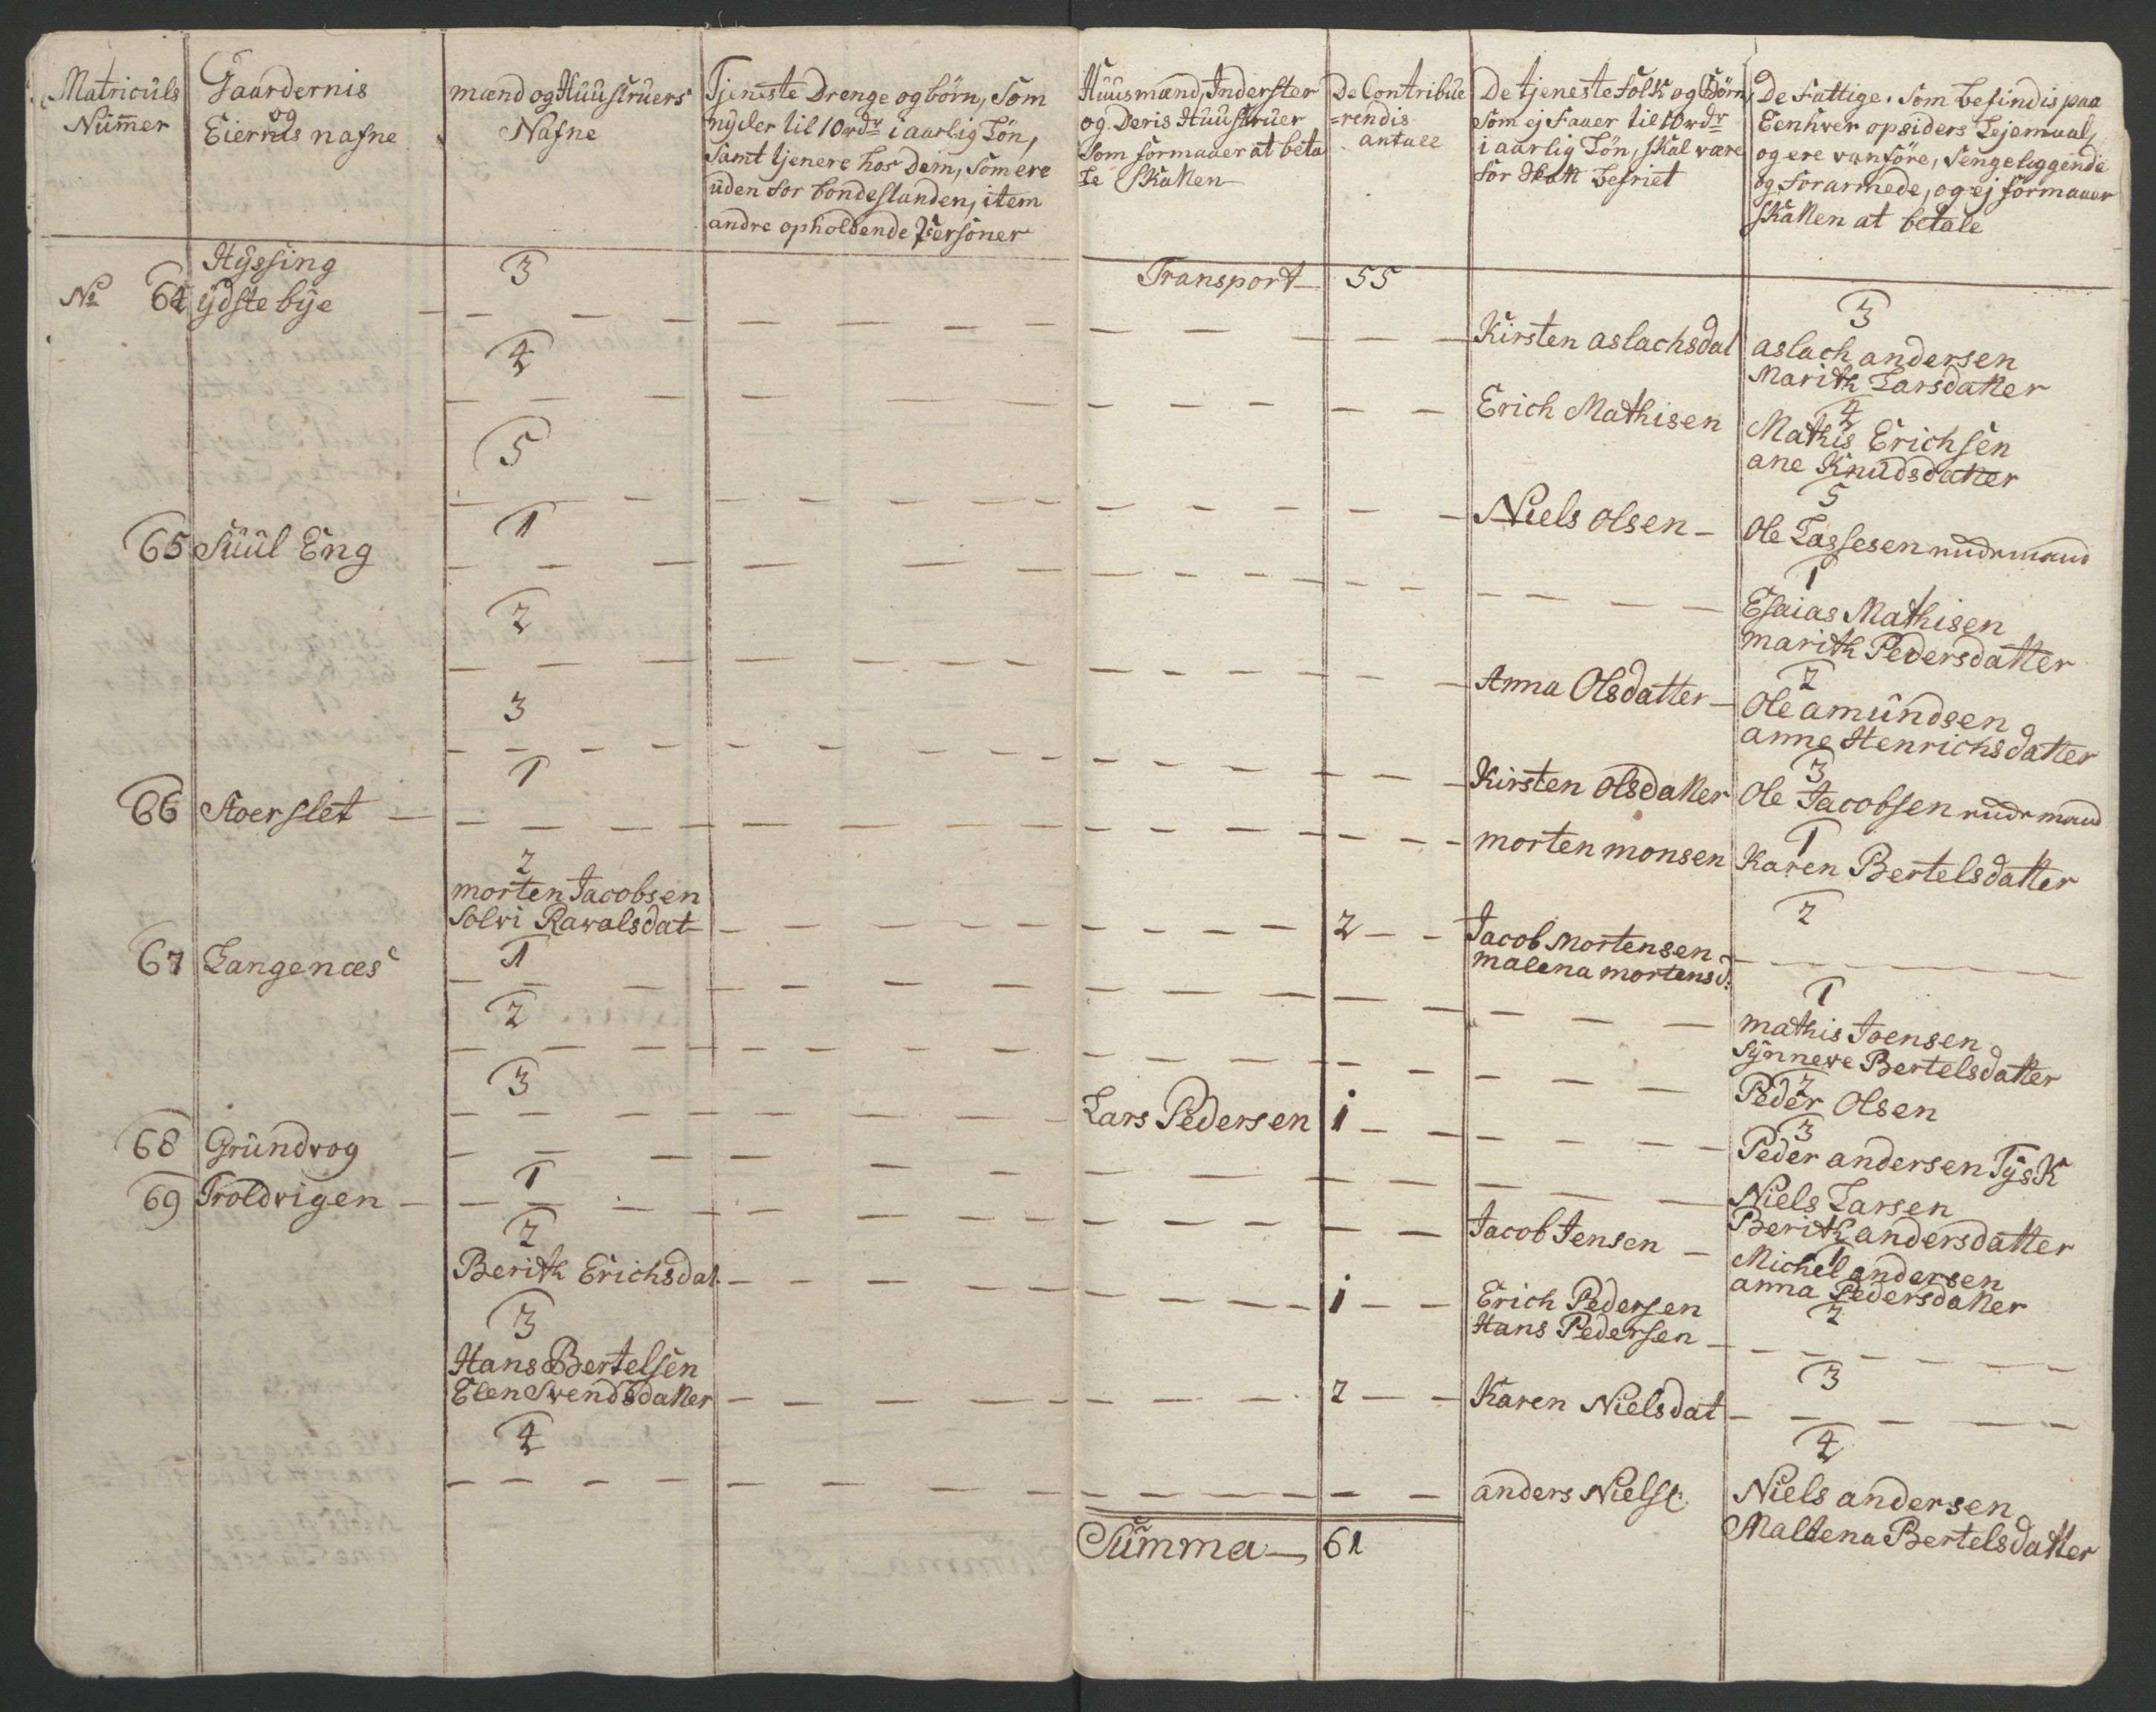 Matriculs
Nummer
Gaardernis
og
Eiernis nafne
mænd og Huustruers
Nafne
Tjeneste Drenge og børn, Som
nyder til 10 rdr i aarlig Løn,
Samt tjenere hos Dem, Som ere
uden for bondestanden, item
andre opholdende Persöner
Huusmænd, Inderster
og Deris Huustruer
Som formaaer at beta
le Skatten
De Contribue
=rendis
antall
De tjeneste folk og Børn,
Som ej Faaer til 10 rdr
i aarlig Løn, skal være
for skatt befriet
De Fattige, Som befindis paa
Eenhver opsiders Lejemaal,
og ere vanföre, Sengeliggende
og forarmede, og ej formaaer
skatten at betale
Hyssing
No 64 ÿdste bÿe
3
Transport 55
3
Kirsten aslachsdat
aslach andersen
Marith Larsdatter
4
4
Erich Mathisen
Mathis Erichsen
ane Knudsdatter
5
5
Niels Olsen
Ole Lassesen
65 Süül Eng
1
1
Esaias Mathisen
marith Pedersdatter
2
2
Anna Olsdatter
Ole amundsen
anne Henrichsdatter
3
3
Kirsten Olsdatter
Ole Jacobsen
66 Stoerslet
1
1
morten monsen
Karen Bertelsdatter
2
2
morten Jacobsen
Solvi Ravalsdat
2
Jacob Mortensen
malena mortensd:
67 Langenæs
1
1
mathis Joensen
Synneve Bertelsdatter
2
2
Peder Olsen
3
3
Lars Pedersen 1
Peder andersen Tÿsk
68 Grundvog
Niels Larsen
Berith andersdatter
69 Troldvigen
1
1
Jacob Jensen
Michel andersen
anna Pedersdatter
2
2
Berith Erichsdat
1
Erich Pedersen
Hans Pedersen
3
3
Hans Bertelsen
Elen Svendsdatter
2
Karen Nielsdat
4
4
anders Niels:
Niels andersen
Malena Bertelsdatter
Summa 61